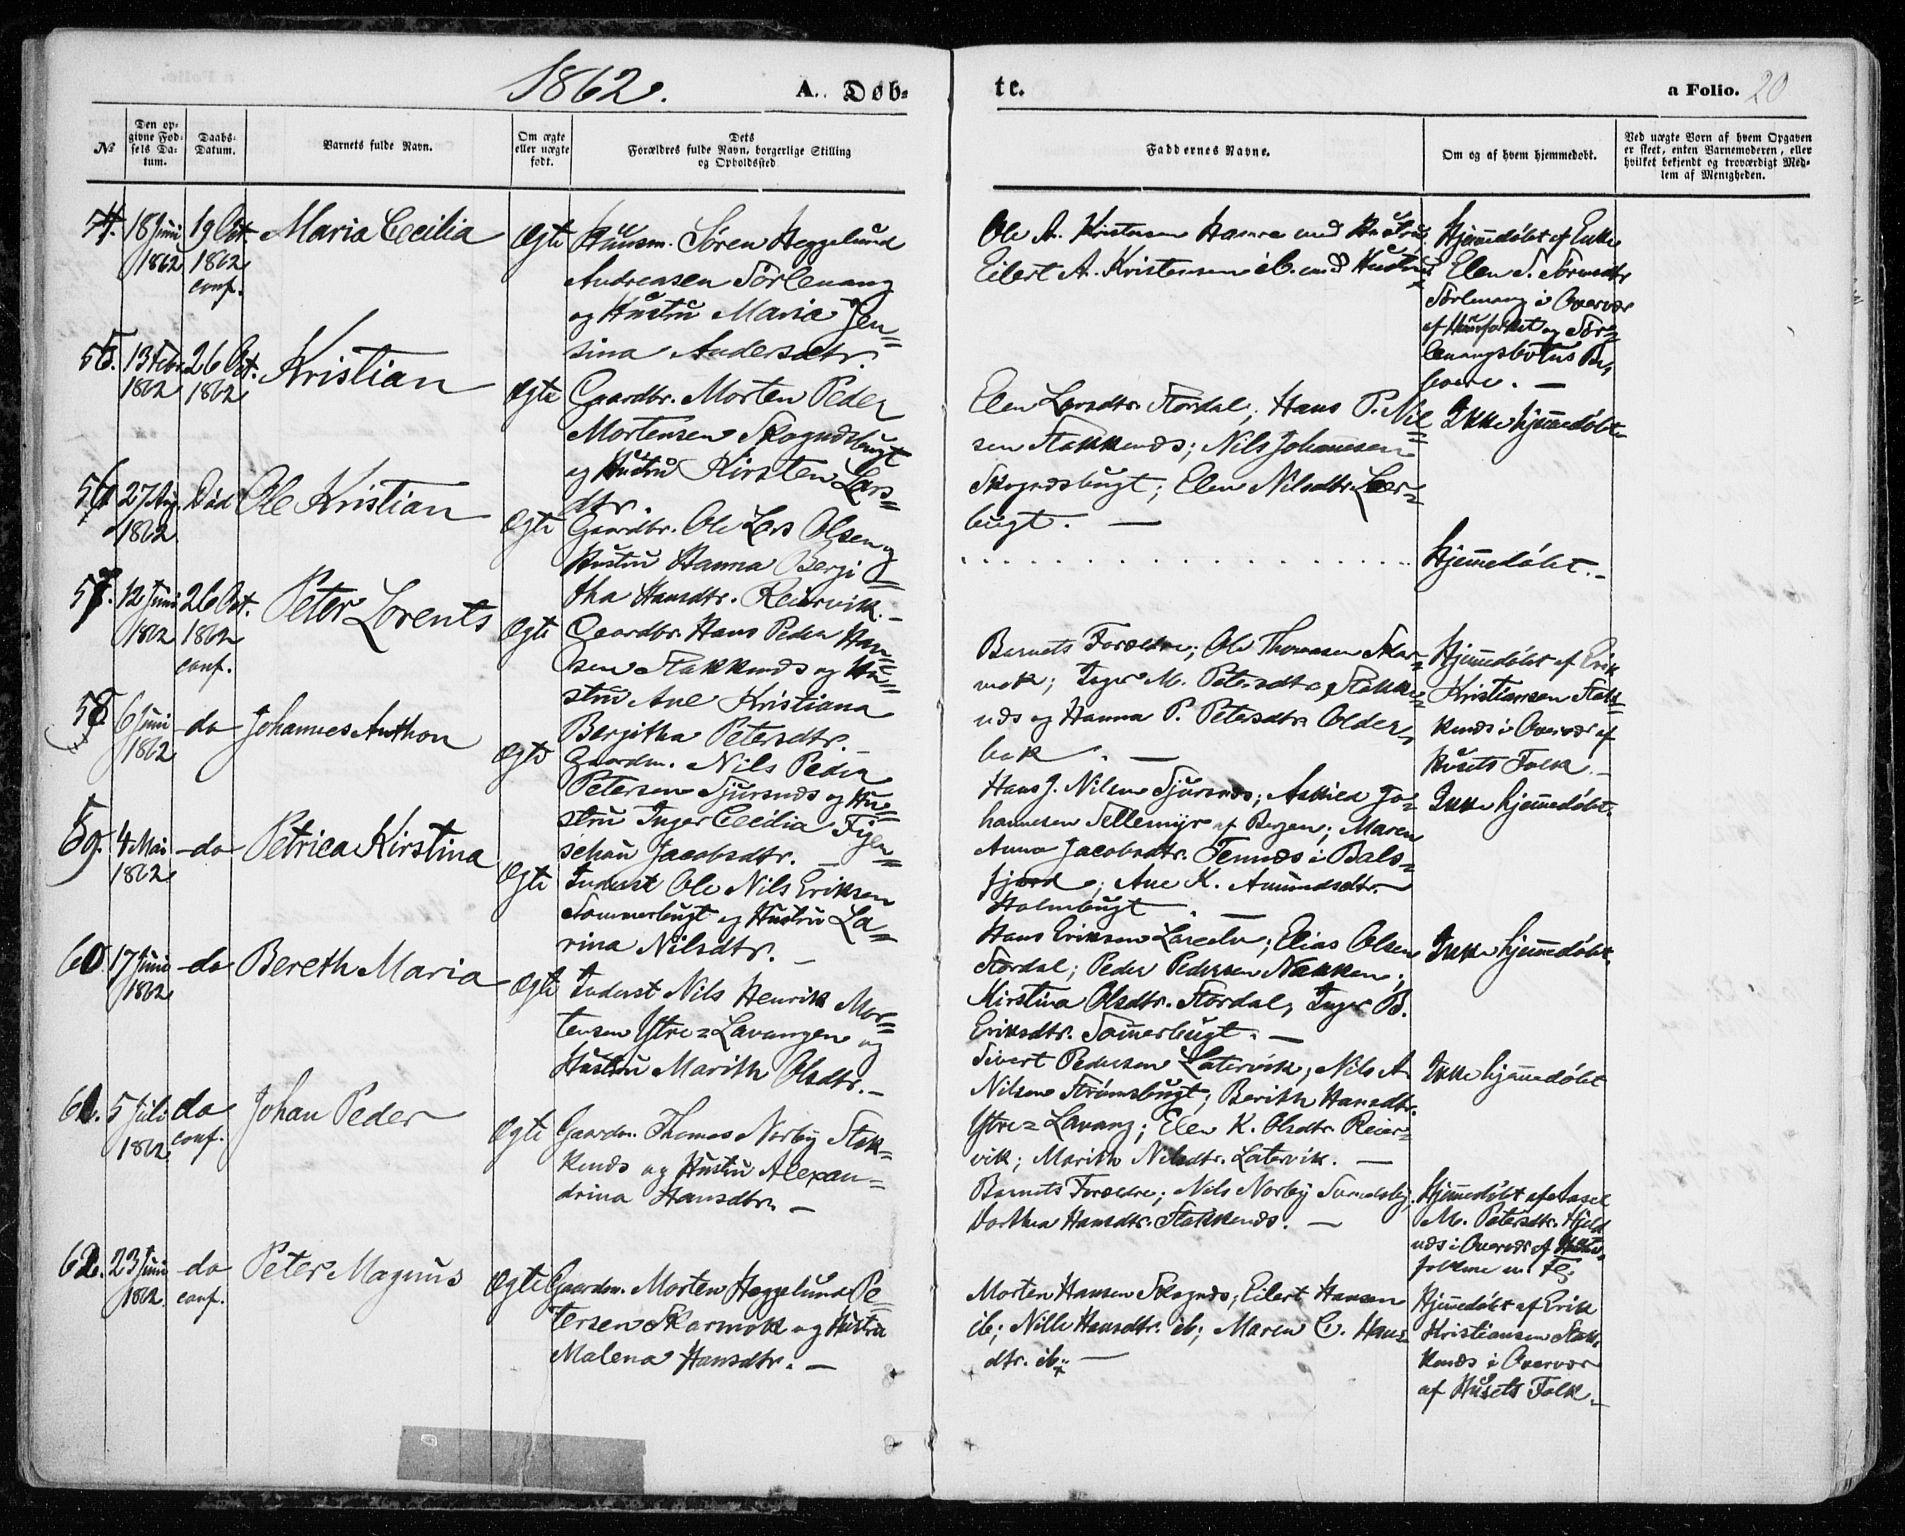 1862.
A. Døb-
te.
a Folio. 20
№
Den op-
givne Fød-
sels Da-
tum.
Daabs-
Datum.
Barnets fulde Navn.
Om ægte
eller uægte
født.
Dets
Forældres fulde Navn, borgerlige Stilling
og Opholdssted.
Faddernes Navne.
Om og af hvem hjemmedøbt.
Ved uægte Børn af hvem Opgaven
er skeet, enten Barnemoderen, eller
hvilket bekjendt og troværdigt Med-
lem af Menigheden.
54. 18 Juni
1862
19 Oct.
1862
conf.
Maria Cecilia
Ægte
Huusm. Søren Heggelund
Andreasen Sørlenang
og Hustru Maria Jen=
sina Andersdtr.
Ole A. Kristensen Hamre med Hustru
Eilert A. Kristensen ib. med Hustru
Hjemmedøbt af Enke
Elen S. Sørensdtr
Sørlenang i Overvær
af Huusfolket og Sør=
lenangsbotns Be-
boere. —
55. 13 Febr.
1862
26 Oct.
1862
Kristian
Ægte
Gaardbr. Morten Peder
Mortensen Skognæsbugt
og Hustru Kirsten Lars=
dtr.
Elen Larsdtr. Stordal; Hans P. Niel=
sen Stakkenæs; Nils Johannesen
Skognæsbugt; Elen Nilsdtr. Leer=
bugt. —
Ikke hjemmedøbt
56. 27 Aug.
1862
Død
Ole Kristian
Ægte
Gaardbr. Ole Lars Olsen og
Hustru Hanna Berji=
tha Hansdtr. Reiervik. -
Hjemmedøbt. -
57. 12 Juni
1862
26 Oct.
1862
conf.
Peter Lorents
Ægte
Gaardbr. Hans Peder Han=
sen Stakkenæs og Hu=
stru Ane Kristiana
Berjitha Petersdtr. -
Barnets Forældre; Ole Thomasen Skar=
mok; Inger M. Petersdtr. Stakke=
næs og Hanna P. Petersdtr. Older=
bak. —
Hjemmedøbt af Erik
Kristiansen Stak=
kenæs i Overvær af
Husets Folk. -
58. 6 Juni
1862
do
Johannes Anthon
Ægte
Gaardm. Nils Peder
Petersen Sjursnæs og Hu=
stru Inger Cecilia Figen=
schou Jacobsdtr. —
Hans J. Nilsen Sjursnæs; Askild Jo=
hannesen Tellemyr af Bergen; Maren
Anna Jacobsdtr. Tennæs i Bals=
fjord; Ane K. Amundsdtr.
Holmbugt. —
Ikke hjemmedøbt.
59. 4 Mai
1862
do
Petrica Kirstina
Ægte
Inderst Ole Nils Eriksen
Sommerbugt og Hustru La=
rina Nilsdtr. —
Hans Eriksen; Elias Olsen
Stordal; Peder Pedersen Nakken;
Kirstina Olsdtr. Stordal, Inger B.
Eriksdtr. Somerbugt. —
Ikke hjemmedøbt.
60. 17 Juni
1862
do
Bereth Maria
Ægte
Inderst Nils Henrik Mor=
tensen Ytre=Lavangen og
Hustru Marith Olsdtr. -
Sivert Pedersen Latervik; Nils A.
Nilsen Strømsbugt; Berith Hansdtr.
Ytre=Lavang; Elen K. Olsdtr. Reier=
vik; Marith Nilsdtr. Latervik. —
Ikke hjemmedøbt
61. 5 Juli
1862
do
conf.
Johan Peder
Ægte
Gaardm. Thomas Norby Stak=
kenæs og Hustru Alexan=
drina Hansdtr. —
Barnets Forældre; Nils Norby
Dorthea Hansdtr. Stakkenæs. —
Hjemmedøbt af Aasel
M. Petersdtr. Hjeld
næs i Overvær af
folkene
62. 23 Juni
1862
do
conf.
Peter Magnus
Ægte
Gaardm. Morten Heggelund Pe=
tersen Skarmok og Hustru
Malena Hansdtr. —
Morten Hansen Skognæs; Eilert Hansen
ib; Nille Hansdtr. ib; Maren C. Hans=
dtr. ib. —
Hjemmedøbt af Erik
Kristiansen Stak=
kenæs i Overvær
af Husets Folk. -